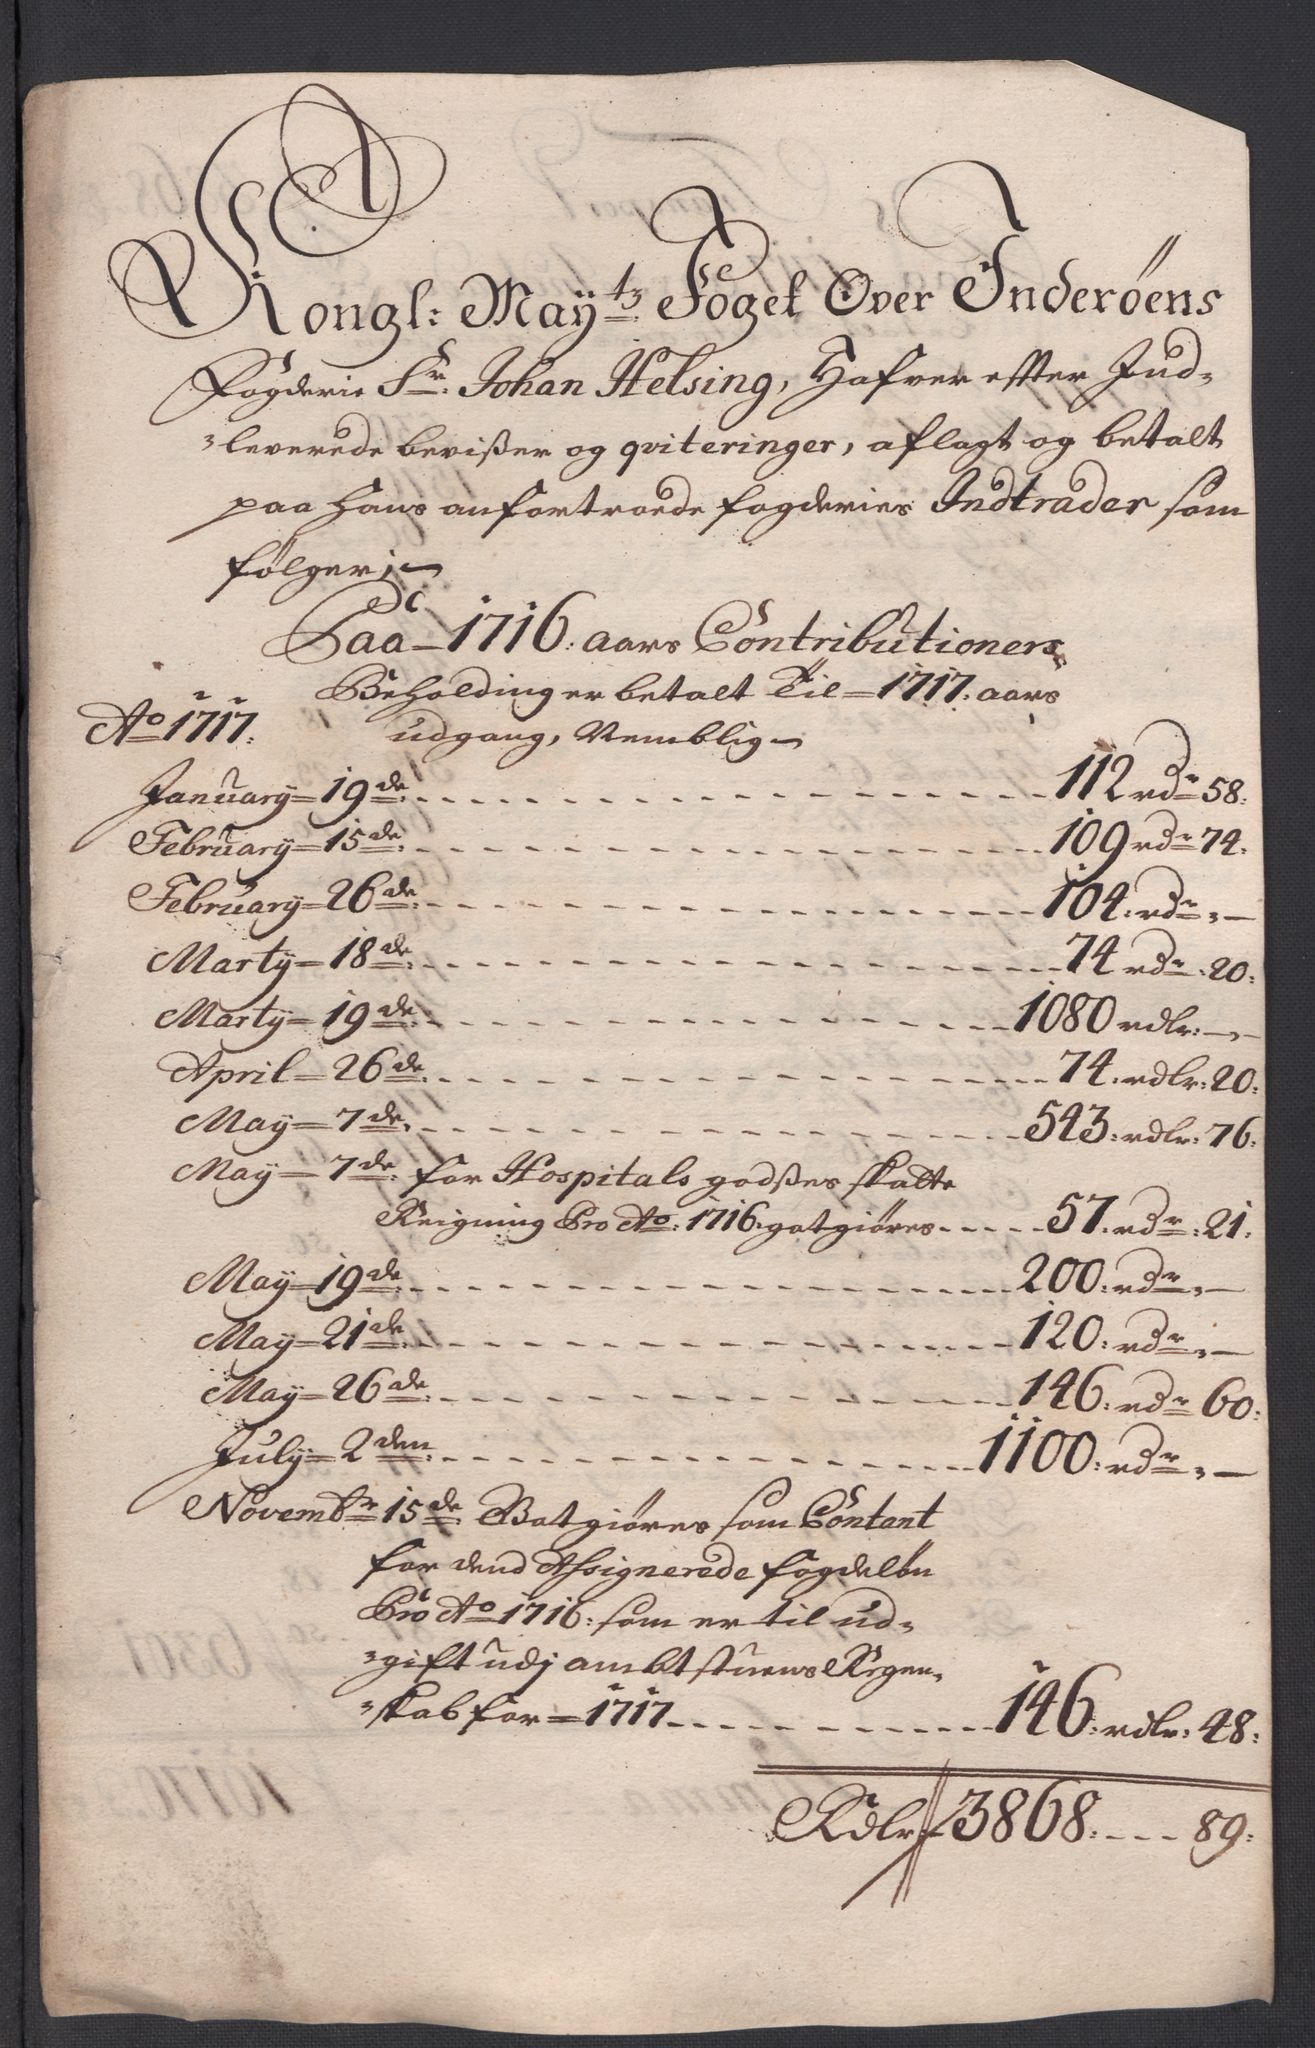 Kongl: May.tz Foget Over Inderöens
Fogderie Sr. Johan Helsing, Hafver effter Ind-
-leverede bevißer og qviteringer, aflagt og betalt
paa hans anfortroede fogderies Indtrader som
følger;
Paa 1716. aars Contributioners
Beholding er betalt Til 1717. aars
Ao 1717.
udgang, Nemblig
January 19de 112 rdr 58:
February 15de 109 rdr 74.
February 26de 104. rdr „ —
Marty 18de 74 rdr 20:
Marty 19de 1080 rdlr: —
April 26de 74. rdlr: 20:
May 7de 543. rdlr: 76:
May 7de for Hospitals godßes skatte
Reigning Pro Ao: 1716. gatgiöres 57. rdr: 21.
May 19de 200. rdr „ —
May 21de 120. rdr „ —
May 26de 146. rdr 60:
July 2den 1100. rdr „ —
Novembr 15de Gatgiöres som Contant
for dend Assignerede fogdelön
Pro Ao 1716: som er til ud-
-gift udj ambtstuens Regen-
-skab for 1717 146. rdlr. 48:
Rdlr 3868. 89: